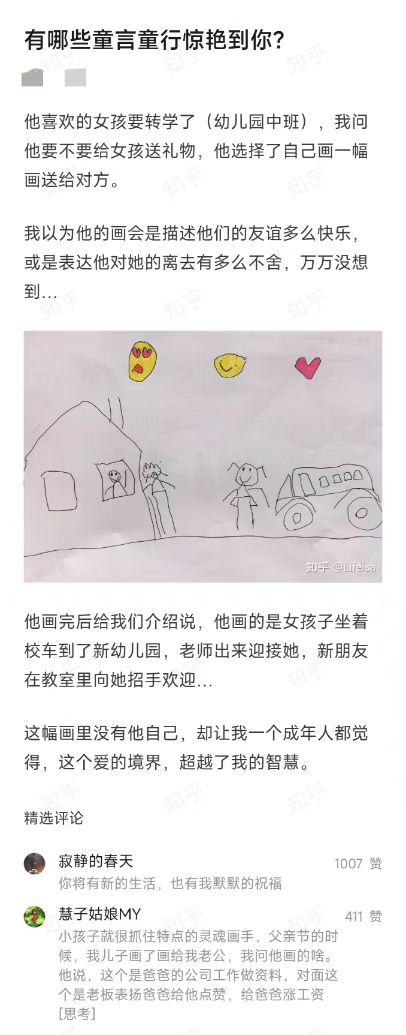 有哪些童言童行惊艳到你？
他喜欢的女孩要转学了（幼儿园中班），我问
他要不要给女孩送礼物，他选择了自己画一幅
画送给对方。
我以为他的画会是描述他们的友谊多么快乐，
或是表达他对她的离去有多么不舍，万万没想
到...
知乎 @Lifeisa
他画完后给我们介绍说，他画的是女孩子坐着
校车到了新幼儿园，老师出来迎接她，新朋友
在教室里向她招手欢迎...
这幅画里没有他自己，却让我一个成年人都觉
得，这个爱的境界，超越了我的智慧。
精选评论
寂静的春天 1007 赞
你将有新的生活，也有我默默的祝福
慧子姑娘MY 411 赞
小孩子就很抓住特点的灵魂画手，父亲节的时
候，我儿子画了画给我老公，我问他画的啥。
他说，这个是爸爸的公司工作做资料，对面这
个是老板表扬爸爸给他点赞，给爸爸涨工资
[思考]